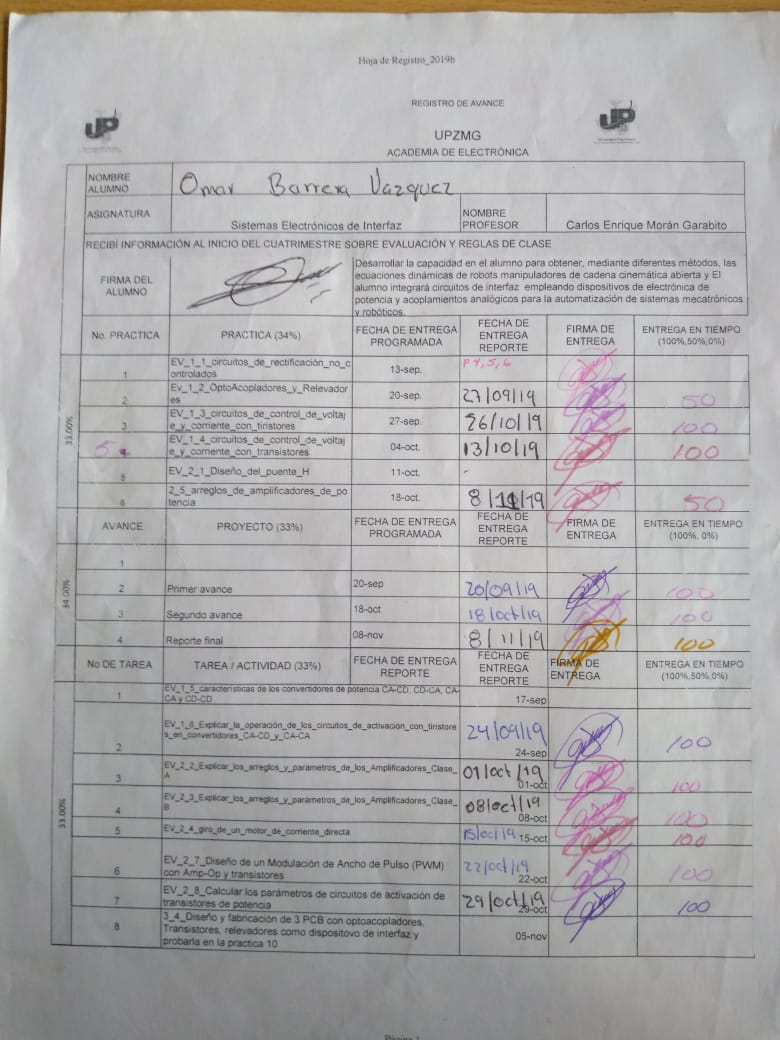 Hoja de Registro_2019b
REGISTRO DE AVANCE
UP
UP
UPZMG
ACADEMIA DE ELECTRÓNICA
NOMBRE ALUMNO Omar Barrera Vazquez
ASIGNATURA Sistemas Electrónicos de Interfaz NOMBRE PROFESOR Carlos Enrique Morán Garabito
RECIBÍ INFORMACIÓN AL INICIO DEL CUATRIMESTRE SOBRE EVALUACIÓN Y REGLAS DE CLASE
FIRMA DEL ALUMNO
Desarrollar la capacidad en el alumno para obtener, mediante diferentes métodos, las
ecuaciones dinámicas de robots manipuladores de cadena cinemática abierta y El
alumno integrará circuitos de interfaz empleando dispositivos de electrónica de
potencia y acoplamientos analógicos para la automatización de sistemas mecatrónicos
y robóticos.
No. PRACTICA PRACTICA (34%) FECHA DE ENTREGA PROGRAMADA FECHA DE ENTREGA REPORTE FIRMA DE ENTREGA ENTREGA EN TIEMPO (100%,50%,0%)
33.00%
1 EV_1_1_circuitos_de_rectificación_no_controlados 13-sep. P 4,5,6
2 Ev_1_2_OptoAcopladores_y_Relevadores 20-sep. 27/09/19 50
3 EV_1_3_circuitos_de_control_de_voltaje_y_corriente_con_tiristores 27-sep. 26/10/19 100
5 4 EV_1_4_circuitos_de_control_de_voltaje_y_corriente_con_transistores 04-oct. 13/10/19 100
5 EV_2_1_Diseño_del_puente_H 11-oct. -
6 2_5_arreglos_de_amplificadores_de_potencia 18-oct. 8/11/19 50
AVANCE PROYECTO (33%) FECHA DE ENTREGA PROGRAMADA FECHA DE ENTREGA REPORTE FIRMA DE ENTREGA ENTREGA EN TIEMPO (100%, 0%)
34.00%
1
2 Primer avance 20-sep 20/09/19 100
3 Segundo avance 18-oct 18/oct/19 100
4 Reporte final 08-nov 8/11/19 100
No DE TAREA TAREA / ACTIVIDAD (33%) FECHA DE ENTREGA REPORTE FECHA DE ENTREGA REPORTE FIRMA DE ENTREGA ENTREGA EN TIEMPO (100%,50%,0%)
33.00%
1 EV_1_5_características de los convertidores de potencia CA-CD, CD-CA, CA-CA y CD-CD 17-sep
2 EV_1_6_Explicar_la_operación_de_los_circuitos_de_activación_con_tiristores_en_convertidores_CA-CD_y_CA-CA 24/09/19 24-sep 100
3 EV_2_2_Explicar_los_arreglos_y_parámetros_de_los_Amplificadores_Clase_A 01/oct/19 01-oct 100
4 EV_2_3_Explicar_los_arreglos_y_parámetros_de_los_Amplificadores_Clase_B 08/oct/19 08-oct 100
5 EV_2_4_giro_de_un_motor_de_corriente_directa 15/oct/19 15-oct 100
6 EV_2_7_Diseño de un Modulación de Ancho de Pulso (PWM) con Amp-Op y transistores 22/oct/19 22-oct 100
7 EV_2_8_Calcular los parámetros de circuitos de activación de transistores de potencia 29/oct/19 29-oct 100
8 3_4_Diseño y fabricación de 3 PCB con optoacopladores, Transistores, relevadores como dispositovo de interfaz y probarla en la practica 10 05-nov
Página 1